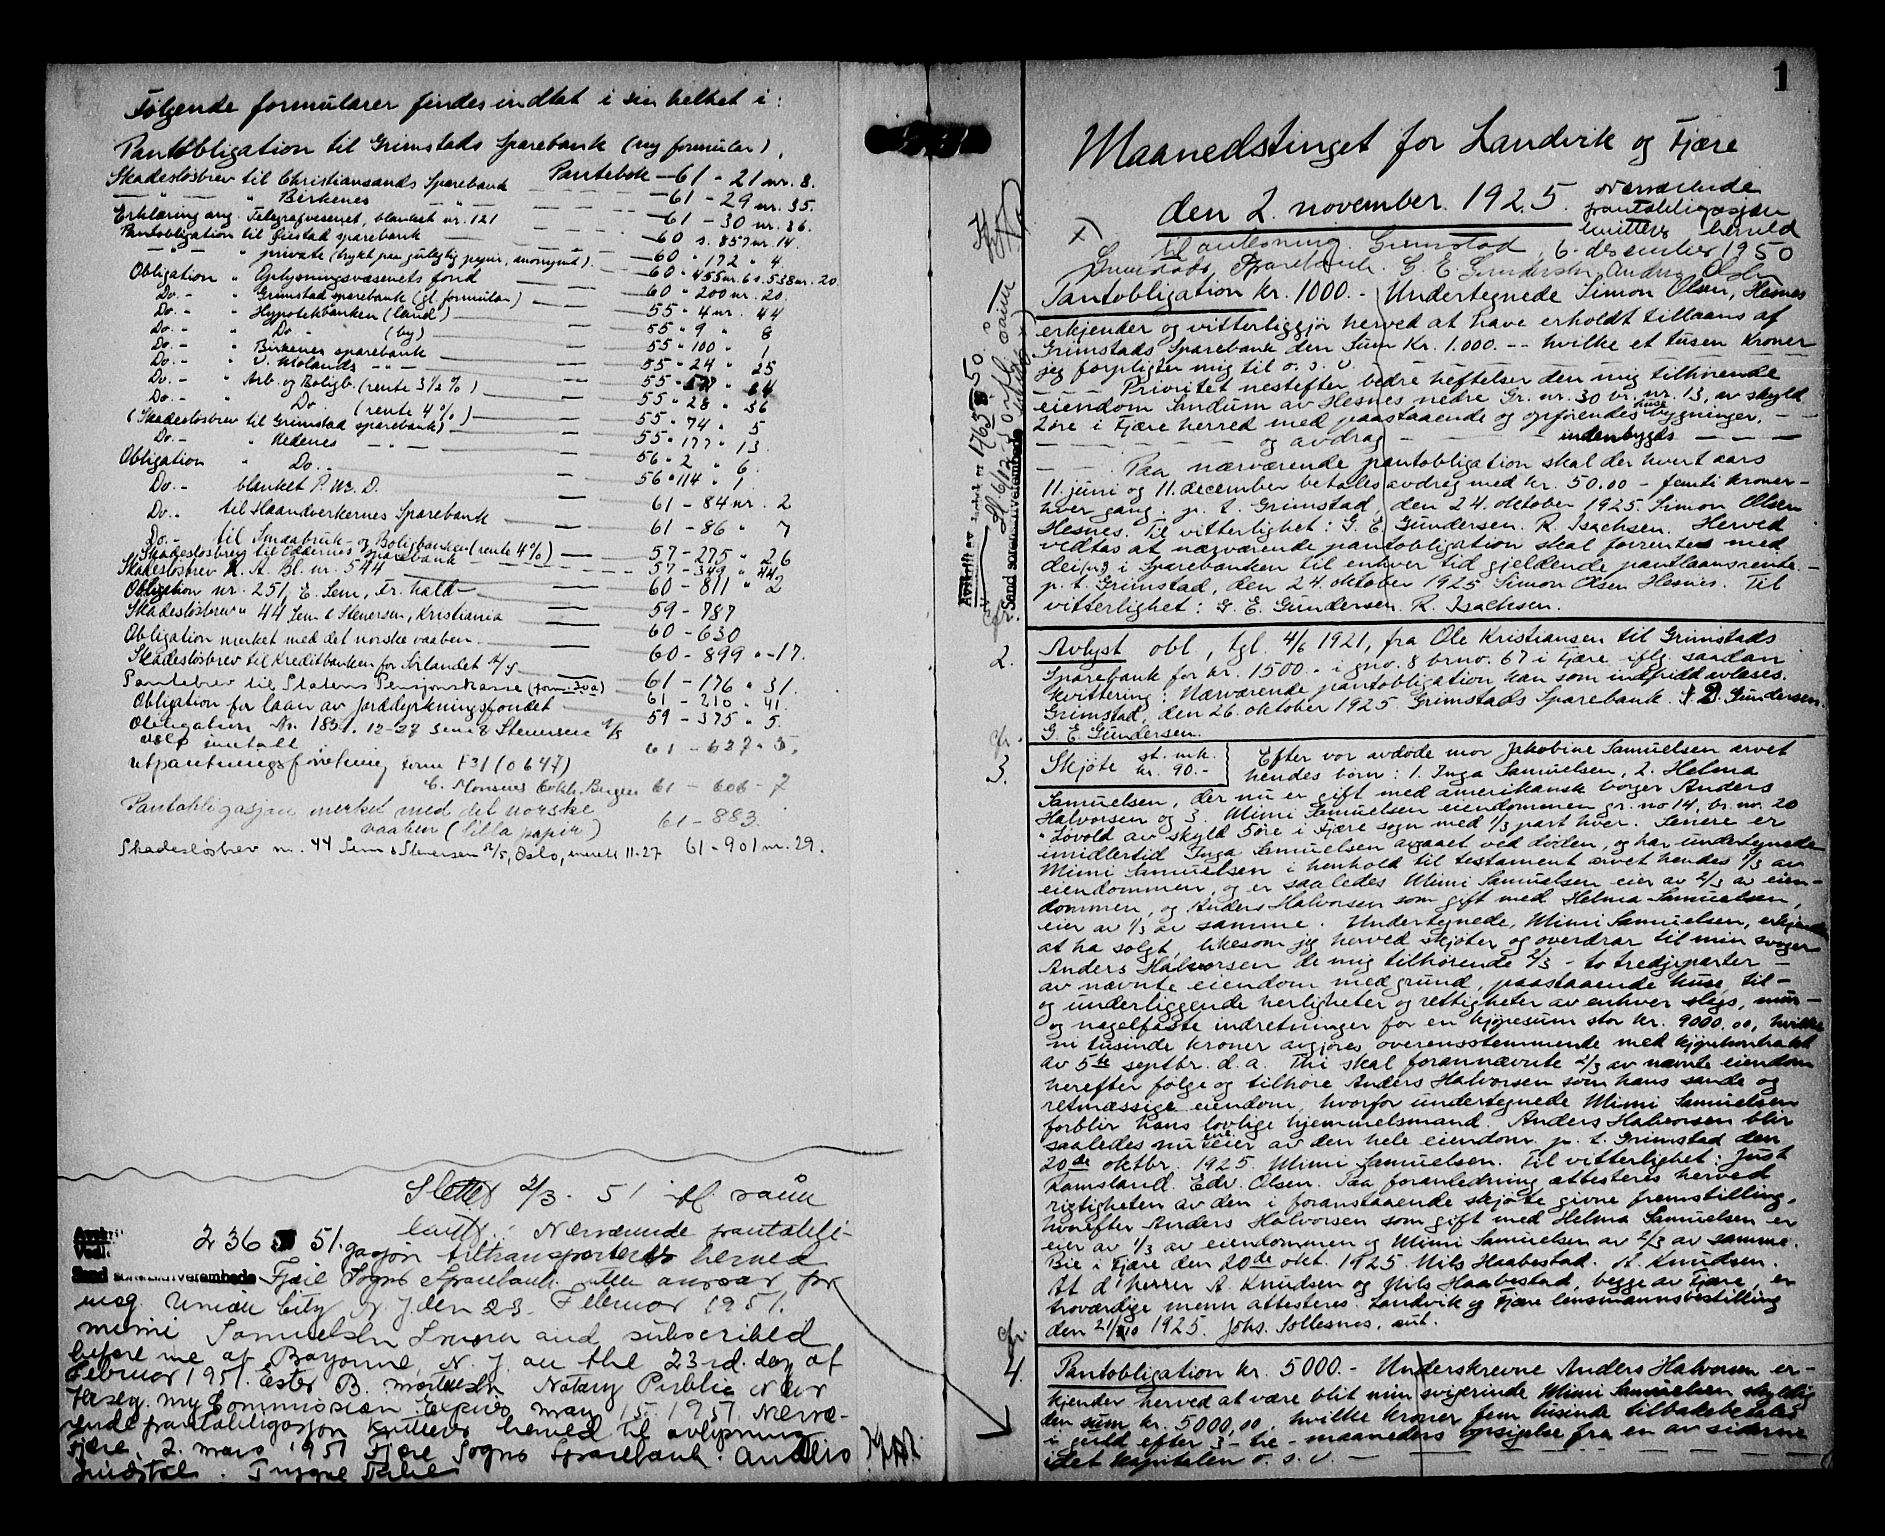 Følgende formularer findes indtat i sin helhet i:
Pantobligation til Grimstads Sparebank (ny formular).
Pantebok — 61 - 21 nr. 8.
Skadesløsbrev til Christiansands Sparebank — 61 - 29 nr. 35.
— " — " Birkenes — " — 61 - 30 nr. 36.
Erklæring ang. Telegrafvesenet, blanket nr. 121 — 60 s. 857 nr. 14.
Pantobligation til Øiestad sparebank — 60 " 172 " 4
— " — " private (trykt paa gulagtig papir, anonymt). 60 " 455 nr. 6 o. 538 nr. 20.
Obligation " Oplysningsvæsenets fond — 60 " 200 nr. 20.
Do. - " Grimstad sparebank (gl. formular) 55 " 4 nr. 44
Do. " Hypotekbanken (land) — 55 " 9 " 8
Do. " Do. - (by) — 55 " 100 " 1
Do. - " Birkenes sparebank — 55 " 24 " 25
Do. - " V. Molands — " — 55 - " 64
Do. - " Arb. og Boligb. (rente 3½ %) — 55 " 28 " 36
Do. - " Do. (rente 4%) — 55 " 74 " 5
(Skadesløsbrev til Grimstad sparebank) — 55 " 177 " 13
Do. - " Hedenes — " — 56 " 2 " 6.
Obligation " Do. — 56 " 114 " 1.
Do. - blanket P. W. D. — 61 - 84 nr. 2
Do. - til Haandverkernes Sparebank — 61 - 86 " 7
Do. - til Smaabruk- og Boligbanken (rente 4%) — 57 - 275 " 26
Skadesløsbrev til Oddernes sparebank — 57 - 349 " 44
Skadesløsbrev N. A. Bl. nr. 544 — 60 - 811 " 2
Obligation nr. 251, E. Sem, Fr.hald — 59 - 787
Skadesløsbrev " 44 Sem & Stenersen, Kristiania — 60 - 630
Obligation merket med det norske vaaben — 60 - 899 " - 17.
Skadesløsbrev til Kreditbanken for Sørlandet A/S — 61 - 176 " 31.
Pantebrev til Statens Pensjonskasse (form. 30a) — 61 - 210 " 41.
Obligation for laan av jorddyrkningsfondet — 59 - 375 " 5.
Obligation No. 185. 12-27 Sem & Stenersen A/S
Oslo — 61 - 627 " 5.
Utpantningsforretning form F31 (0647)
C. Monsens Boktr. Bergen 61 - 606 - 7
Pantobligasjon merket med det norske
vaaben (lilla papir) 61 - 883.
Skadesløsbrev nr. 44 Sem & Stenersen A/S, Oslo, merket 11-27 61 - 901 nr. 29.
Slettet 2/3 - 51
236 51. Nærværende pantobli-
gasjon tiltransporteres herved
Sand sorenskriverembede Fjære Sogns Sparebank uten ansvar for
meg. Union City N. J. den 23. Februar 1951.
Mimi Samuelsen Sworn and subscribed
before me at Bayonne, N. J. on the 23rd. day of
Februar 1951. Ester B. Notary Public New
Jersey. My Commission Expires May 15. 1951. Nærvæ-
rende pantobligasjon kvitteres herved til avlysning
Fjære, 2. mars 1951 Fjære Sogns Sparebank. Anders
1
Maanedstinget for Landvik og Fjære
den 2. november. 1925.
Nærværende
pantobligasjon
kvitteres herved
x) til avlysning. Grimstad, 6. desember 1950
Grimstads Sparebank. G. E. Gundersen Andr. Olsen
Avskrift av 1763 50.
Sand sorenskriverembede
Pantobligation kr. 1000. - Undertegnede Simon Olsen, Hesnes
erkjender og vitterliggjør herved at have erholdt tillaans af
Grimstads Sparebank den Sum Kr. 1.000. -- hvilke et tusen kroner
jeg forpligter mig til o. s. v.
— — Prioritet nestefter bedre heftelser den mig tilhørende
eiendom Sandum av Hesnes nedre Gr. nr. 30 br. nr. 13, av skyld
2 øre i Fjære herred med paastaaende og opførendes huse bygninger. —
— og avdrag — — indenbygds — — —
— — Paa nærværende pantobligation skal der hvert aars
11. juni og 11. december betales avdrag med kr. 50.00 - femti kroner -
hver gang. p. t. Grimstad, den 24. oktober 1925. Simon Olsen
Hesnes. Til vitterlighet: G. E. Gundersen. R. Isachsen. Herved
vedtas at nærværende pantobligation skal forrentes med
dei(n) i Sparebanken til enhver tid gjeldende pantlaansrente. -
p. t. Grimstad, den 24. oktober 1925 Simon Olsen Hesnes. Til
vitterlighet: G. E. Gundersen. R. Isachsen.
2. Avlyst obl, tgl. 4/6 1921, fra Ole Kristiansen til Grimstads
Sparebank for kr. 1500. - i gno. 8 brno. 67 i Fjære iflg. saadan
kvittering: Nærværende pantobligation kan som indfridd avlæses.
Grimstad, den 26. oktober 1925 Grimstads Sparebank. Gundersen.
G. E. Gundersen.
cfr.
3. Skjøte st. mk. kr. 90.- } Efter vor avdøde mor Jakobine Samuelsen arvet
hendes børn: 1. Inga Samuelsen, 2. Helma
Samuelsen, der nu er gift med amerikansk borger Anders
Halvorsen og 3. Mimi Samuelsen eiendommen gr. no 14, br. no. 20
"Lovold av skyld 5 øre i Fjære sogn med 1/3 part hver. Senere er
imidlertid Inga Samuelsen avgaaet ved døden, og har undertegnede
Mimi Samuelsen i henhold til testament arvet hendes 1/3 av
eiendommen, og er saaledes Mimi Samuelsen eier av 2/3 av eien-
dommen, og Anders Halvorsen som gift med Helma Samuelsen,
eier av 1/3 av samme. Undertegnede, Mimi Samuelsen, erkjender
at ha solgt, likesom jeg herved skjøter og overdrar til min svoger
Anders Halvorsen de mig tilhørende 2/3 - to tredjeparter -
av nævnte eiendom med grund, paastaaende huse, til-
og underliggende herligheter og rettigheter av enhver slags, mur-
og nagelfaste indretninger for en kjøpesum stor kr. 9000,00, hvilke
ni tusinde kroner avgjøres overensstemmende med kjøpekontrakt
av 5te septbr. d. a. Thi skal forannævnte 2/3 av nævnte eiendom
herefter følge og tilhøre Anders Halvorsen som hans sande og
retmæssige eiendom, hvorfor undertegnede Mimi Samuelsen
forblir hans lovlige hjemmelsmand. Anders Halvorsen blir
saaledes nu eneeier av den hele eiendom. p. t. Grimstad den
20de oktbr. 1925. Mimi Samuelsen. Til vitterlighet: Just
Ramsland. Edv. Olsen. Paa foranledning attesteres herved
rigtigheten av den i foranstaaende skjøte givne fremstilling,
hvorefter Anders Halvorsen som gift med Helma Samuelsen er
eier av 1/3 av eiendommen og Mimi Samuelsen av 2/3 av samme.
Bie i Fjære den 20de okt. 1925 Nils Haabestad. A. Knudsen.
At d'herrer A. Knudsen og Nils Haabestad, begge av Fjære, er
troværdige menn attesteres. Landvik og Fjære lensmannsbestilling
den 21/10 1925. Johs. Sollesnes, aut.
cfr.
4. Pantobligation kr. 5000. - Underskrevne Anders Halvorsen er-
kjender herved at være blit min svigerinde Mimi Samuelsen skyldig
den sum kr. 5000,00, hvilke kroner fem tusinde tilbakebetales
i guld efter 3 - tre - maaneders opsigelse fra en av siderne
idet kapitalen o. s. v. —